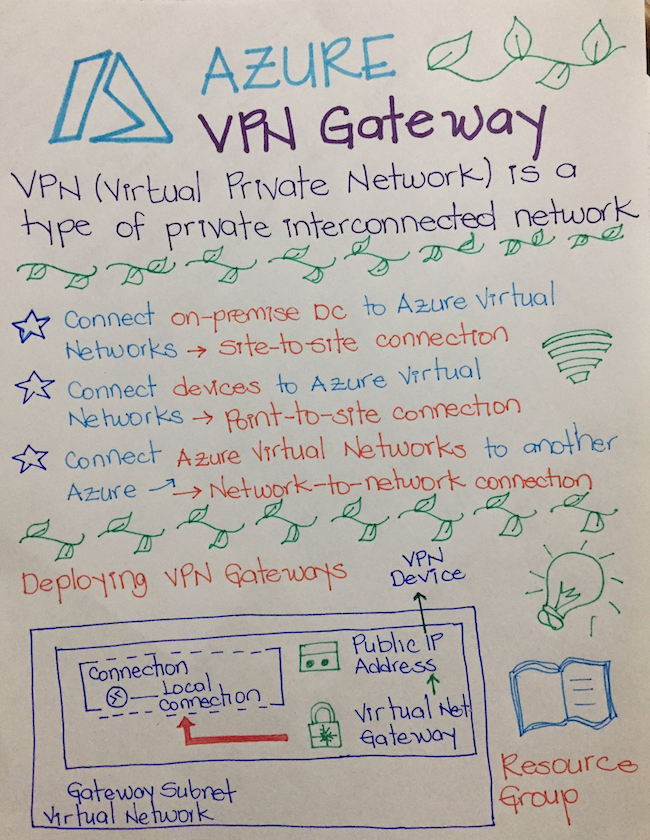 AZURE
VPN Gateway
VPN (Virtual Private Network) is a
type of private interconnected network
Connect on-premise DC to Azure Virtual
Networks → site-to-site connection
Connect devices to Azure Virtual
Networks → Point-to-site connection
Connect Azure Virtual Networks to another
Azure ↗ → Network-to-network connection
Deploying VPN Gateways
VPN
Device
Public IP
Address
Connection
Local
connection
Virtual Net
Gateway
Gateway Subnet
Virtual Network
Resource
Group